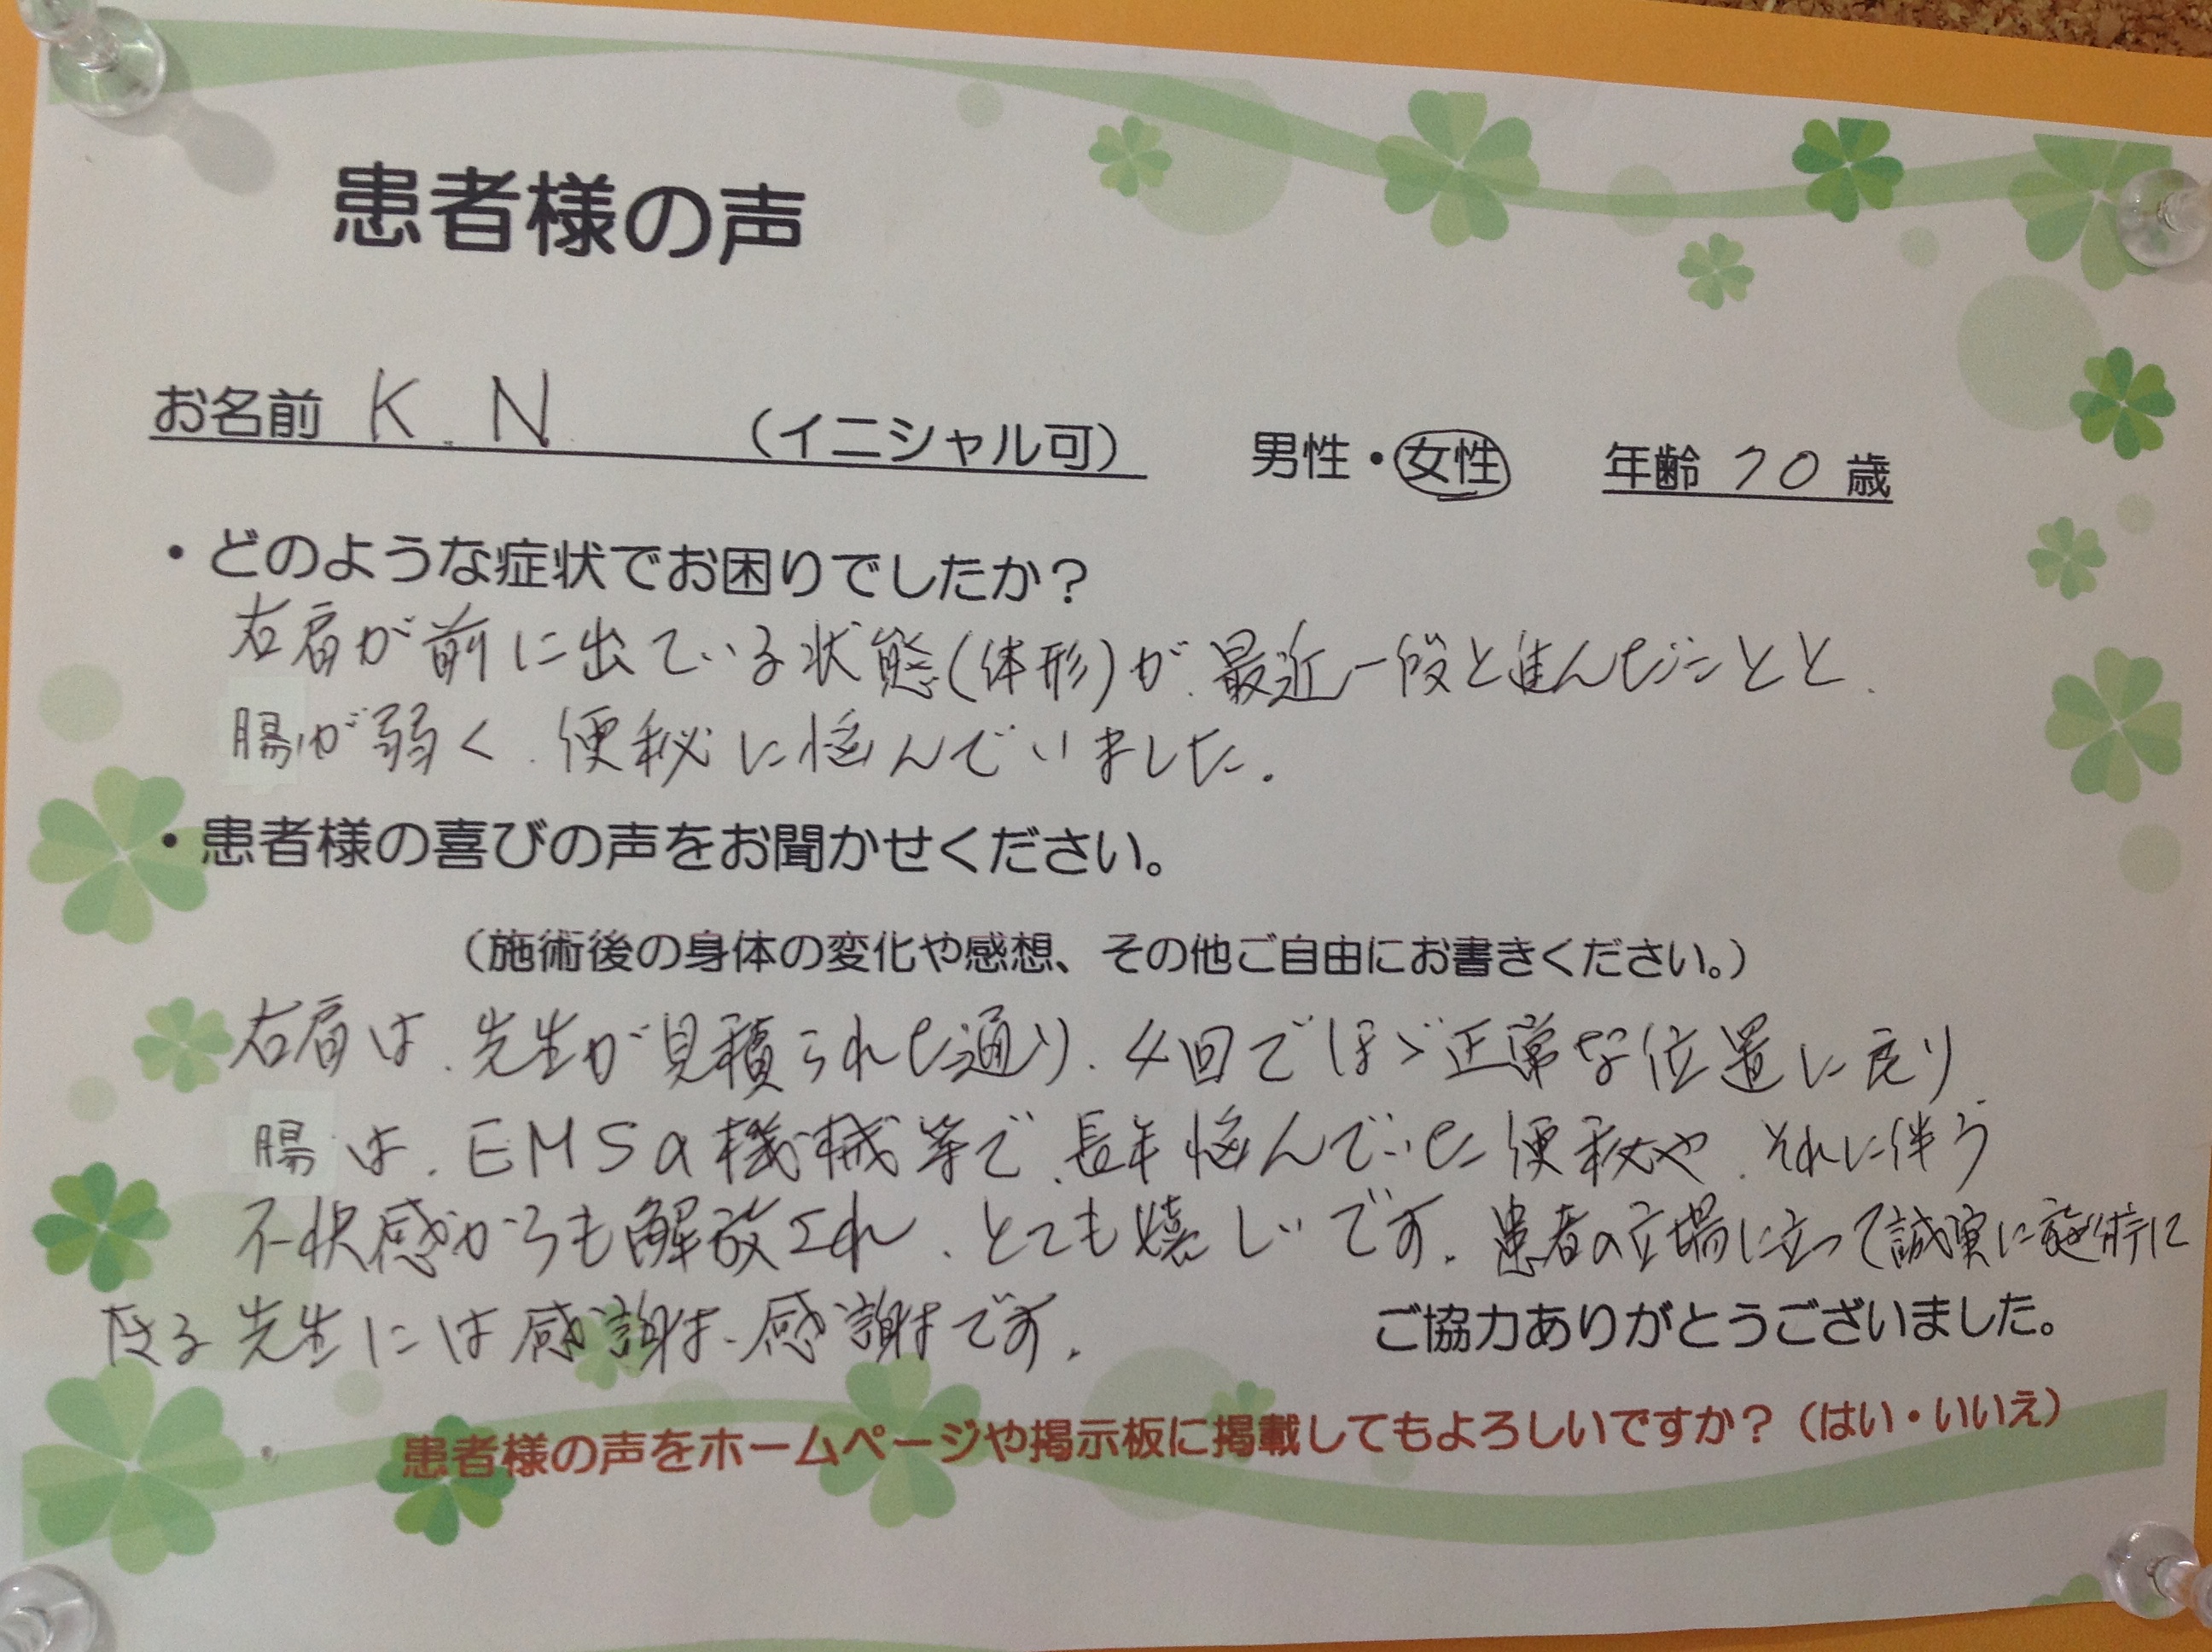 患者様の声
お名前 K.N （イニシャル可） 男性・女性 年齢 70 歳
・どのような症状でお困りでしたか？
右肩が前に出ている状態(体形)が、最近一段と進んだことと、
腸が弱く、便秘に悩んでいました。
・患者様の喜びの声をお聞かせください。
（施術後の身体の変化や感想、その他ご自由にお書きください。）
右肩は、先生が見積られた通り、4回でほゞ正常な位置に戻り、
腸は、EMSの機械等で、長年悩んでいた便秘や、それに伴う
不快感からも解放され、とても嬉しいです。患者の立場に立って誠実に施術に
なる先生には感謝、感謝です。
ご協力ありがとうございました。
患者様の声をホームページや掲示板に掲載してもよろしいですか？（はい・いいえ）